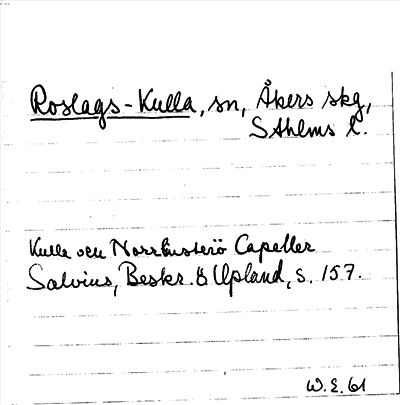 Roslags-Kulla, sn, Åkers skg,
Sthlms l.
Kulla och Capeller
Salvius, Beskr. ö Upland, s. 157.
W.E. 61